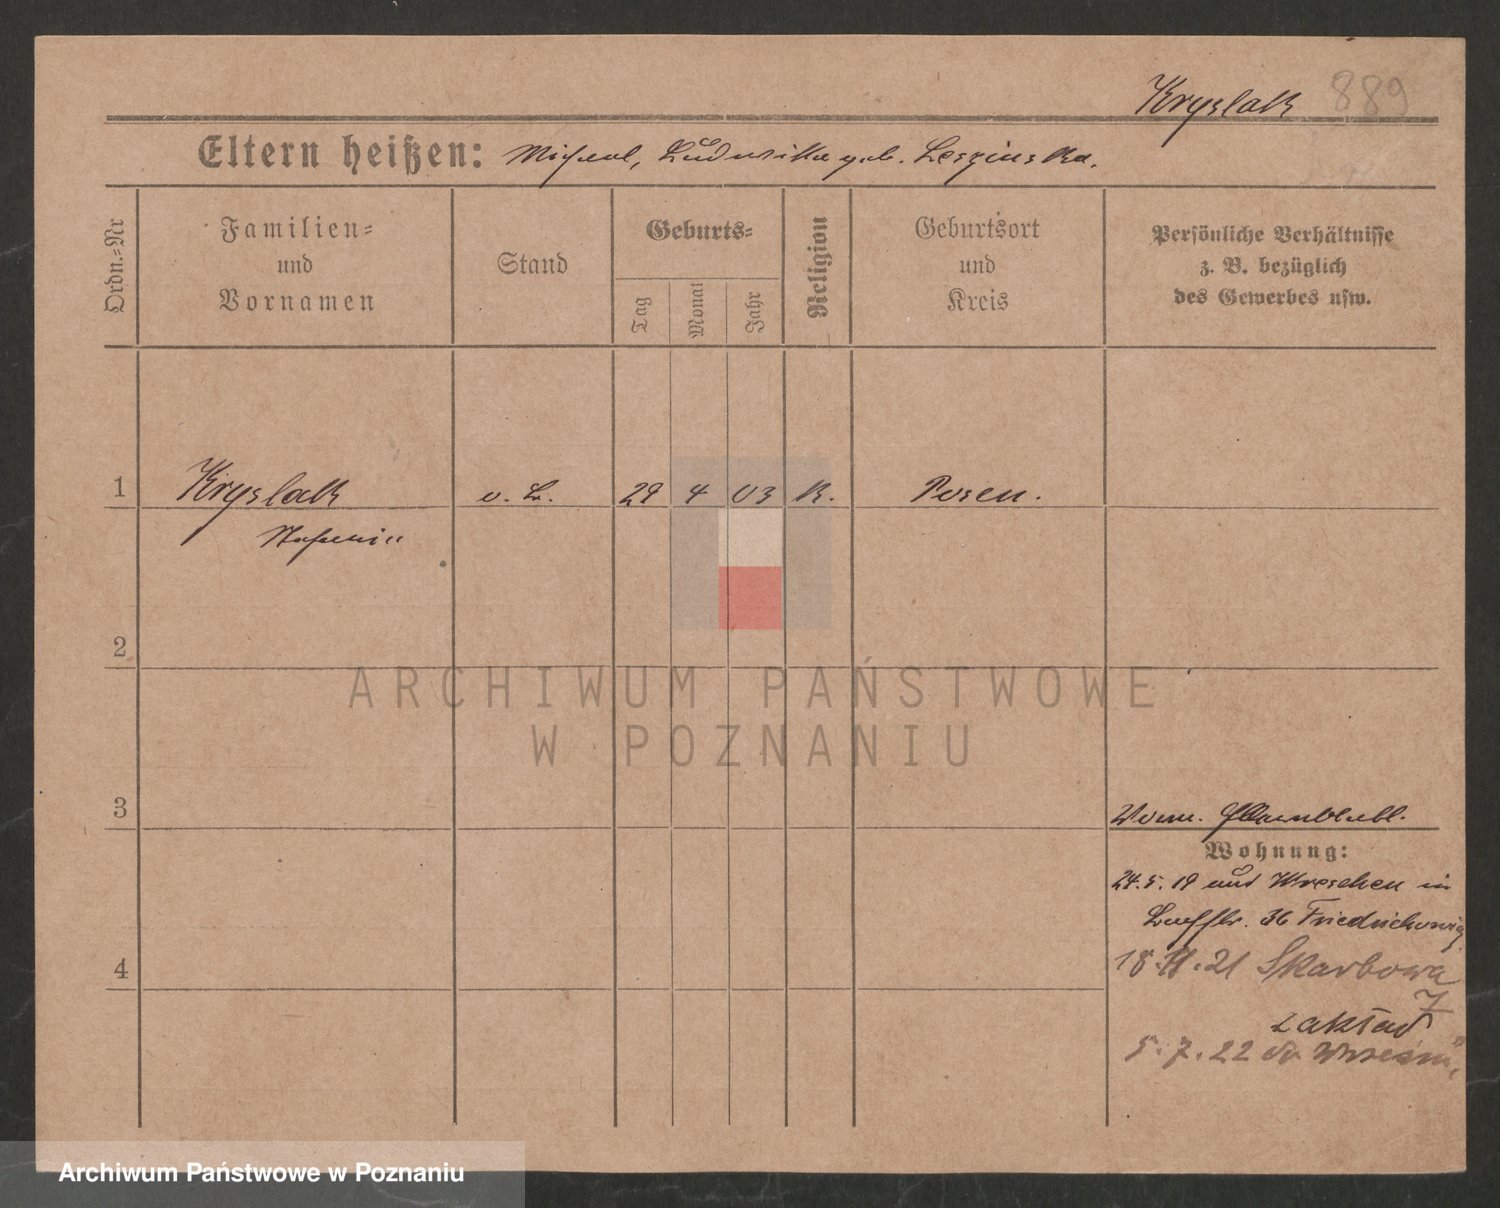 Kryslak 889
Eltern heißen: Michael, Ludwika geb. Leszinska.
Ordn.-Nr
Familien- und Vornamen
Stand
Geburts-
Tag
Monat
Jahr
Religion
Geburtsort und Kreis
Persönliche Verhältnisse
z. B. bezüglich
des Gewerbes usw.
1 Kryslak o. B. 29 4 03 K. Posen.
2
3
Wohnung:
24.5.19 aus Wreschen in
36
18.11.21 Skarbowa
7
zakład
5.7.22 do
4
ARCHIWUM PAŃSTWOWE
W POZNANIU
Archiwum Państwowe w Poznaniu